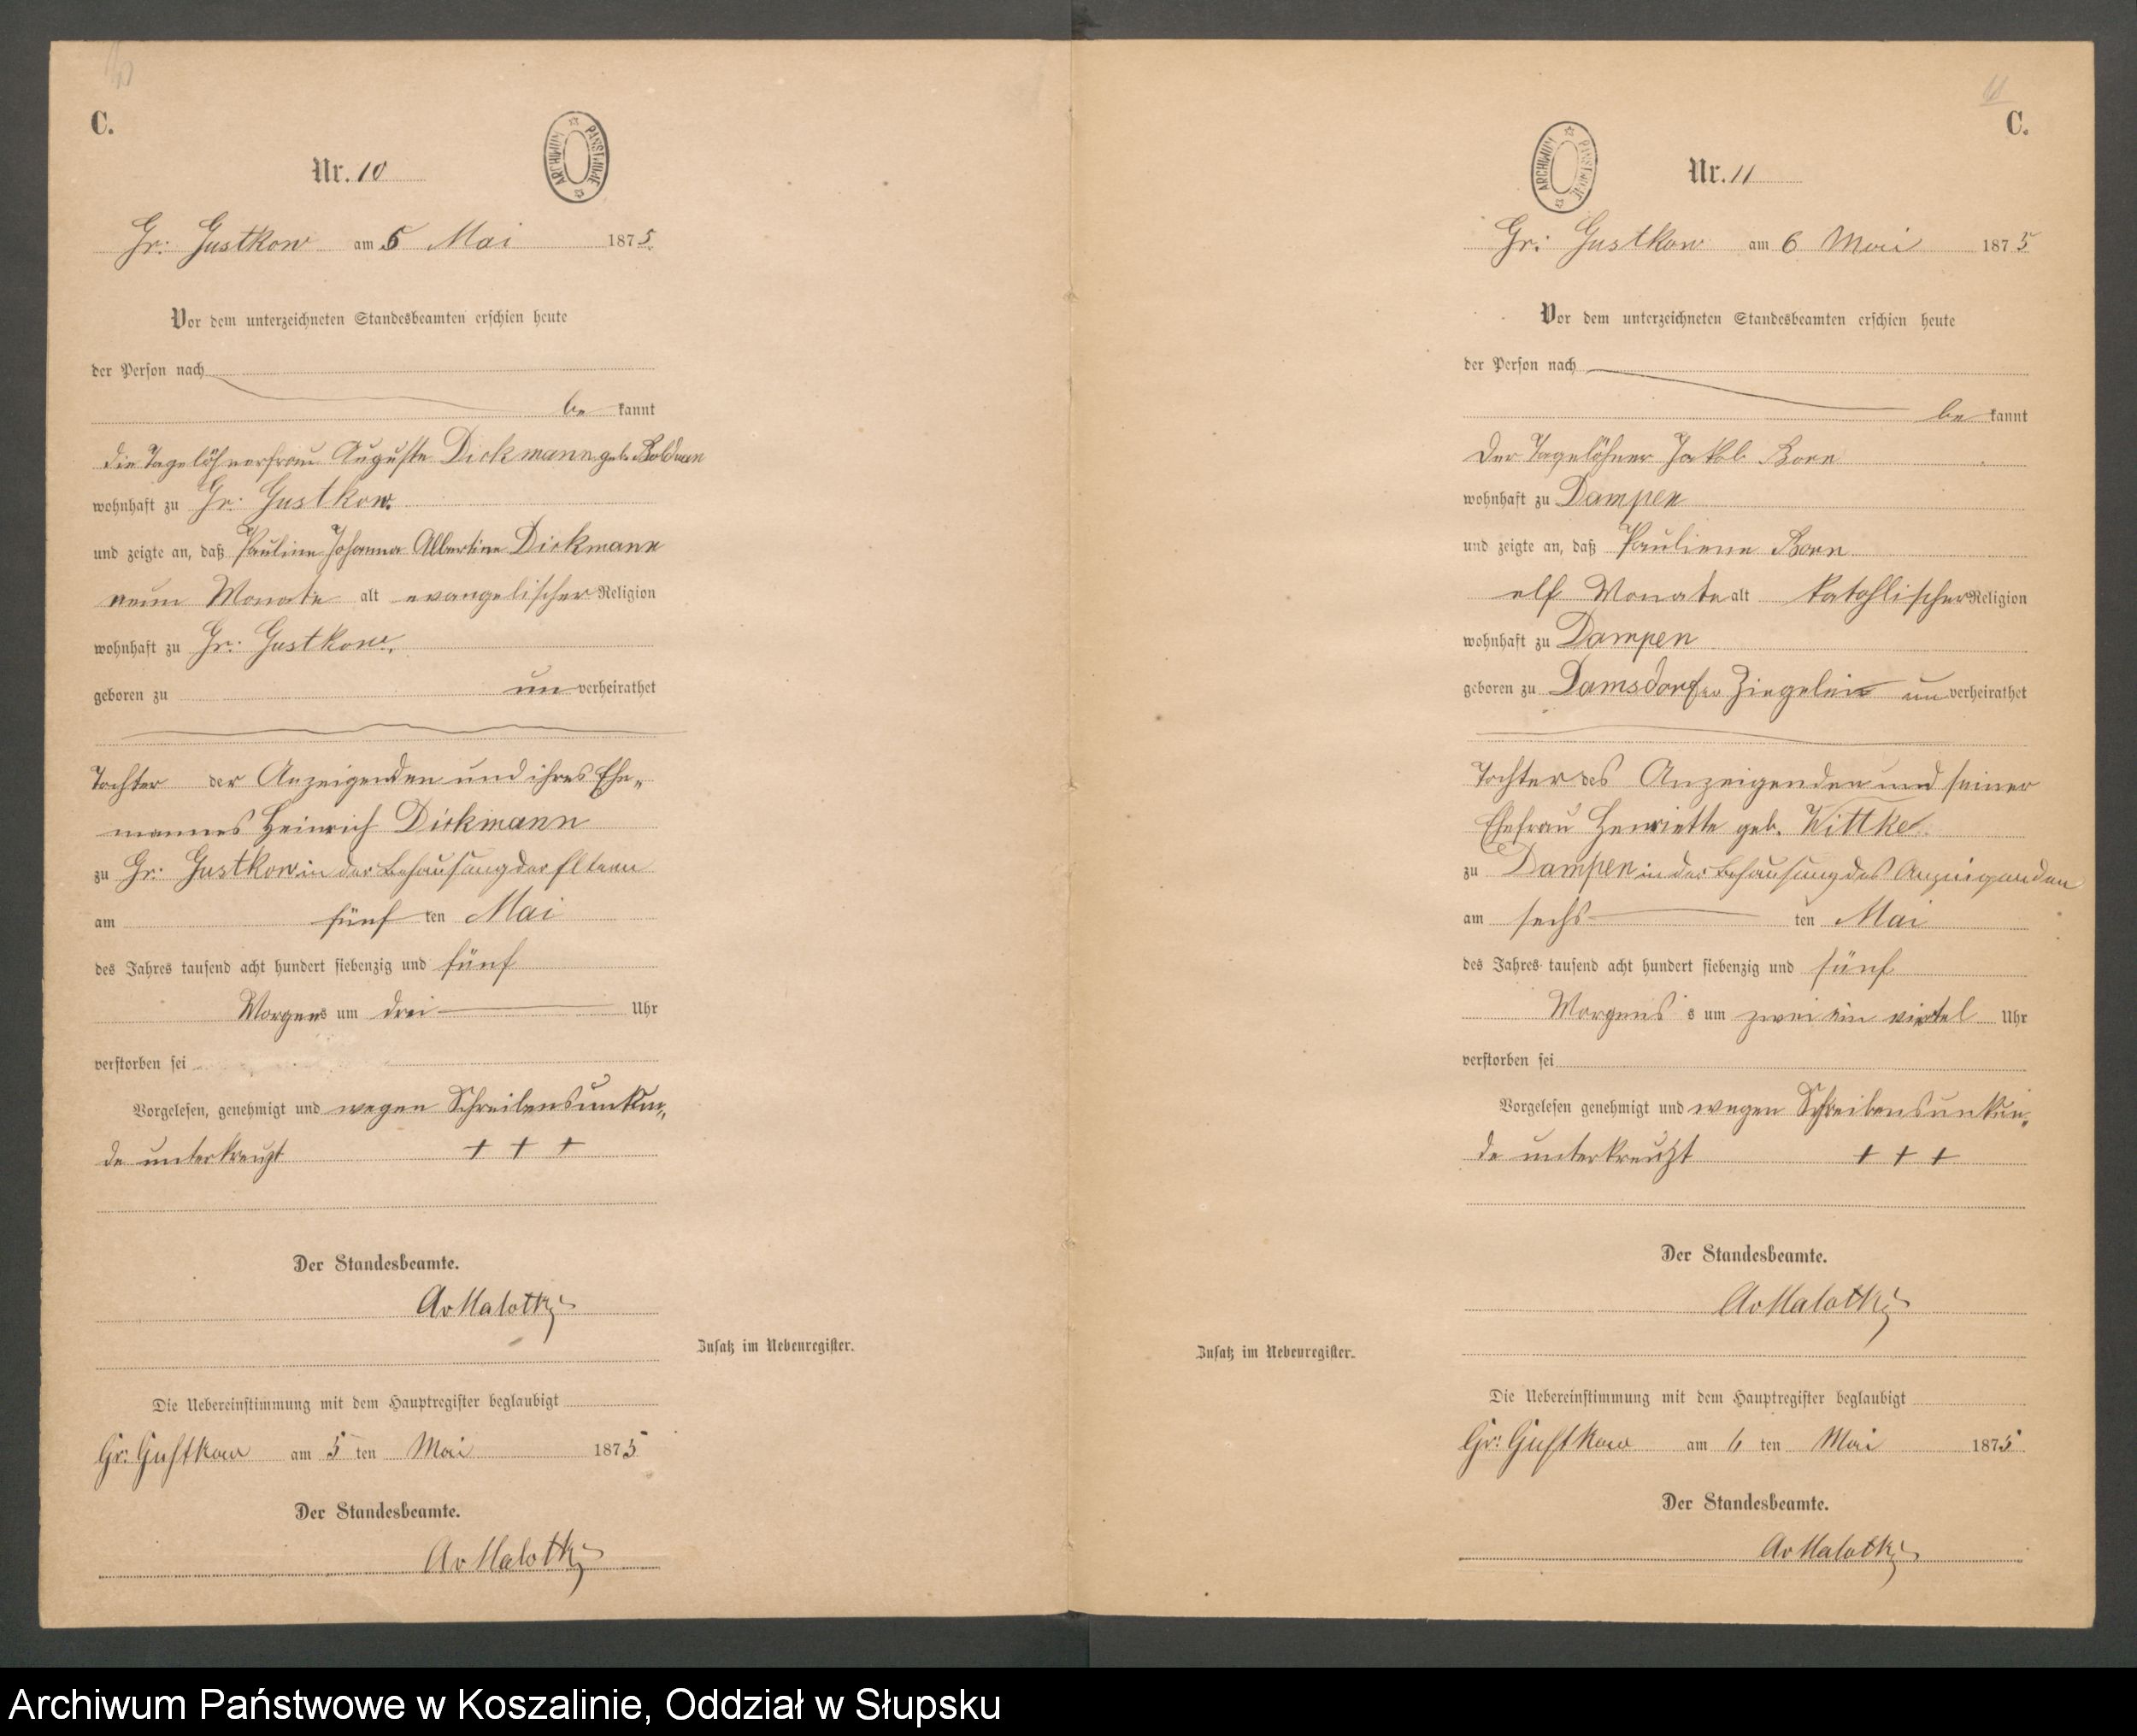 C.
Nr. 10
Gr. Gustkow am 5 Mai 1875.
Vor dem unterzeichneten Standesbeamten erschien heute
der Person nach
be kannt
die Tagelöhnerfrau Auguste Dickmann geb. Bolduan
wohnhaft zu Gr. Gustkow.
und zeigte an, daß Pauline Johanna Albertine Dickmann
neun Monate alt evangelischer Religion
wohnhaft zu Gr. Gustkow.
geboren zu un verheirathet
Tochter der Anzeigenden und ihres Ehe„
mannes Heinrich Dickmann
zu Gr. Gustkow in der Behausung der Eltern
am fünf ten Mai
des Jahres tausend acht hundert siebenzig und fünf
Morgens um drei Uhr
verstorben sei
Vorgelesen, genehmigt und wegen Schreibensunkun„
de unterkreuzt + + +
Der Standesbeamte.
AvMalottki
Zusatz im Nebenregister.
Die Uebereinstimmung mit dem Hauptregister beglaubigt
Gr: Gustkow am 5 ten Mai 1875
Der Standesbeamte.
AvMalottki
C.
Nr. 11
Gr: Gustkow am 6 Mai 1875
Vor dem unterzeichneten Standesbeamten erschien heute
der Person nach
be kannt
Der Tagelöhner Jakob Born
wohnhaft zu Dampen
und zeigte an, daß Pauliene Born
elf Monate alt katohlischer Religion
wohnhaft zu Dampen
geboren zu Damsdorfer Ziegelei un verheirathet
Tochter des Anzeigenden und seiner
Ehefrau Henriette geb. Wittke
zu Dampen in der Behausung des Anzeigenden
am sechs ten Mai
des Jahres tausend acht hundert siebenzig und fünf
Morgens s um zwei ein viertel Uhr
verstorben sei
Vorgelesen genehmigt und wegen Schreibensunkun„
de unterkreuzt + + +
Der Standesbeamte.
AvMalottki
Zusatz im Nebenregister.
Die Uebereinstimmung mit dem Hauptregister beglaubigt
Gr: Gustkow am 6 ten Mai 1875
Der Standesbeamte.
AvMalottki
ARCHIWUM PAŃSTWOWE
ARCHIWUM PAŃSTWOWE
Archiwum Państwowe w Koszalinie, Oddział w Słupsku